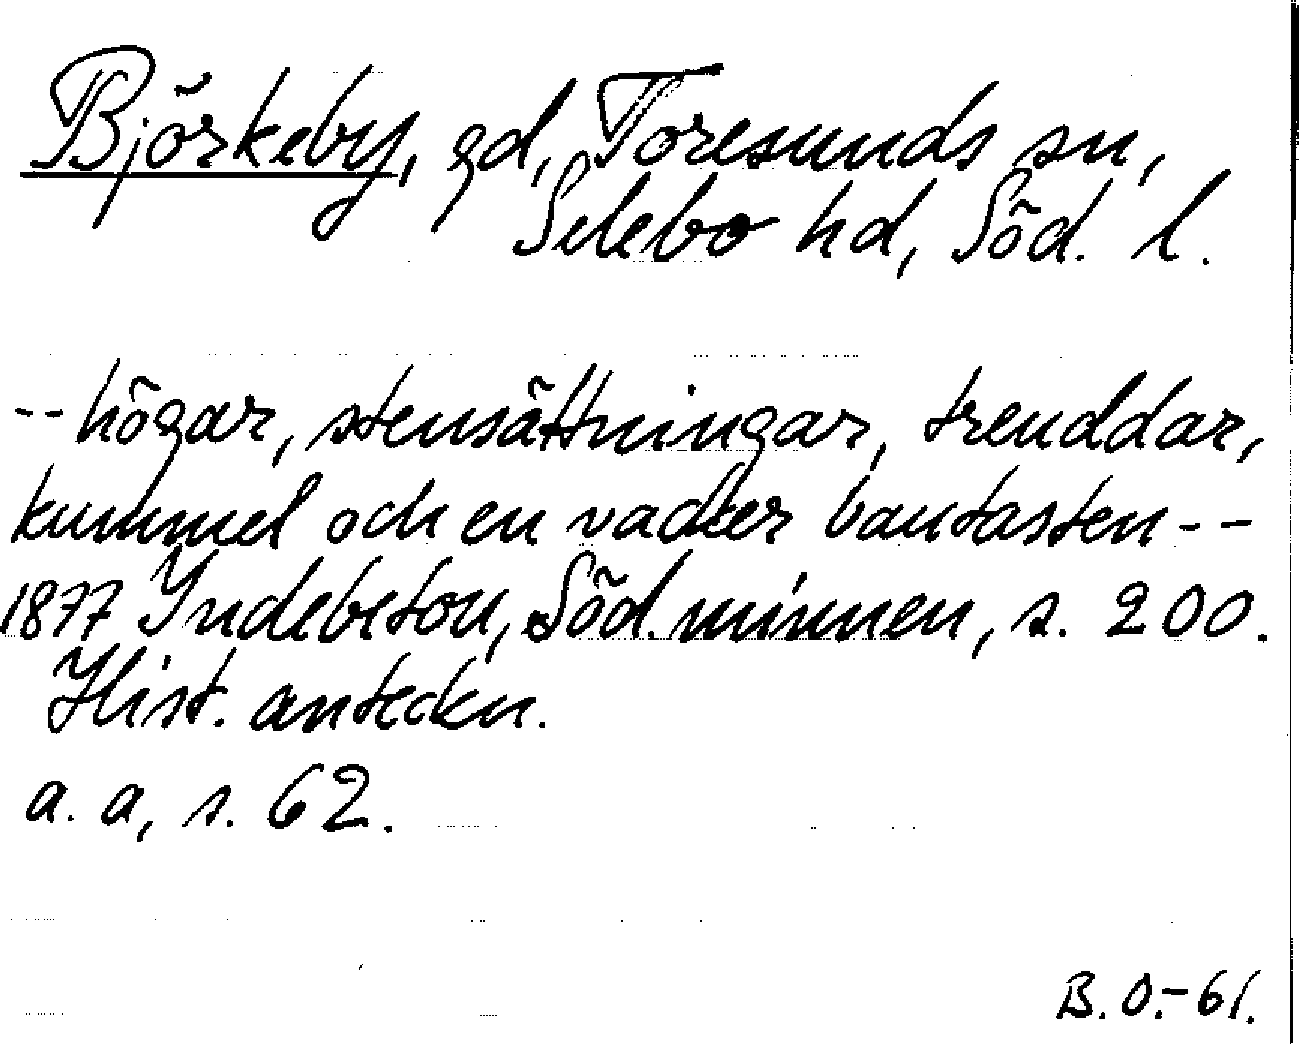 Björkeby, gd, Toresunds sn,
Selebo hd, Söd. l.
-- högar, stensättningar, treuddar,
kummel och en vacker bautasten --
1877 Indebetou, Söd. minnen, s. 200.
Hist. anteckn.
a. a, s. 62.
B. O. - 61.